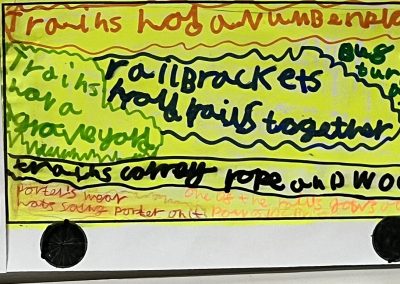 Trains hav a Number pla
Trains
hav a
graveyard
rail Brackets
hold rails together
Bus
tur
trains carrey rope and woo
Porter's wear
hats saing porter on it
one of the rails gows